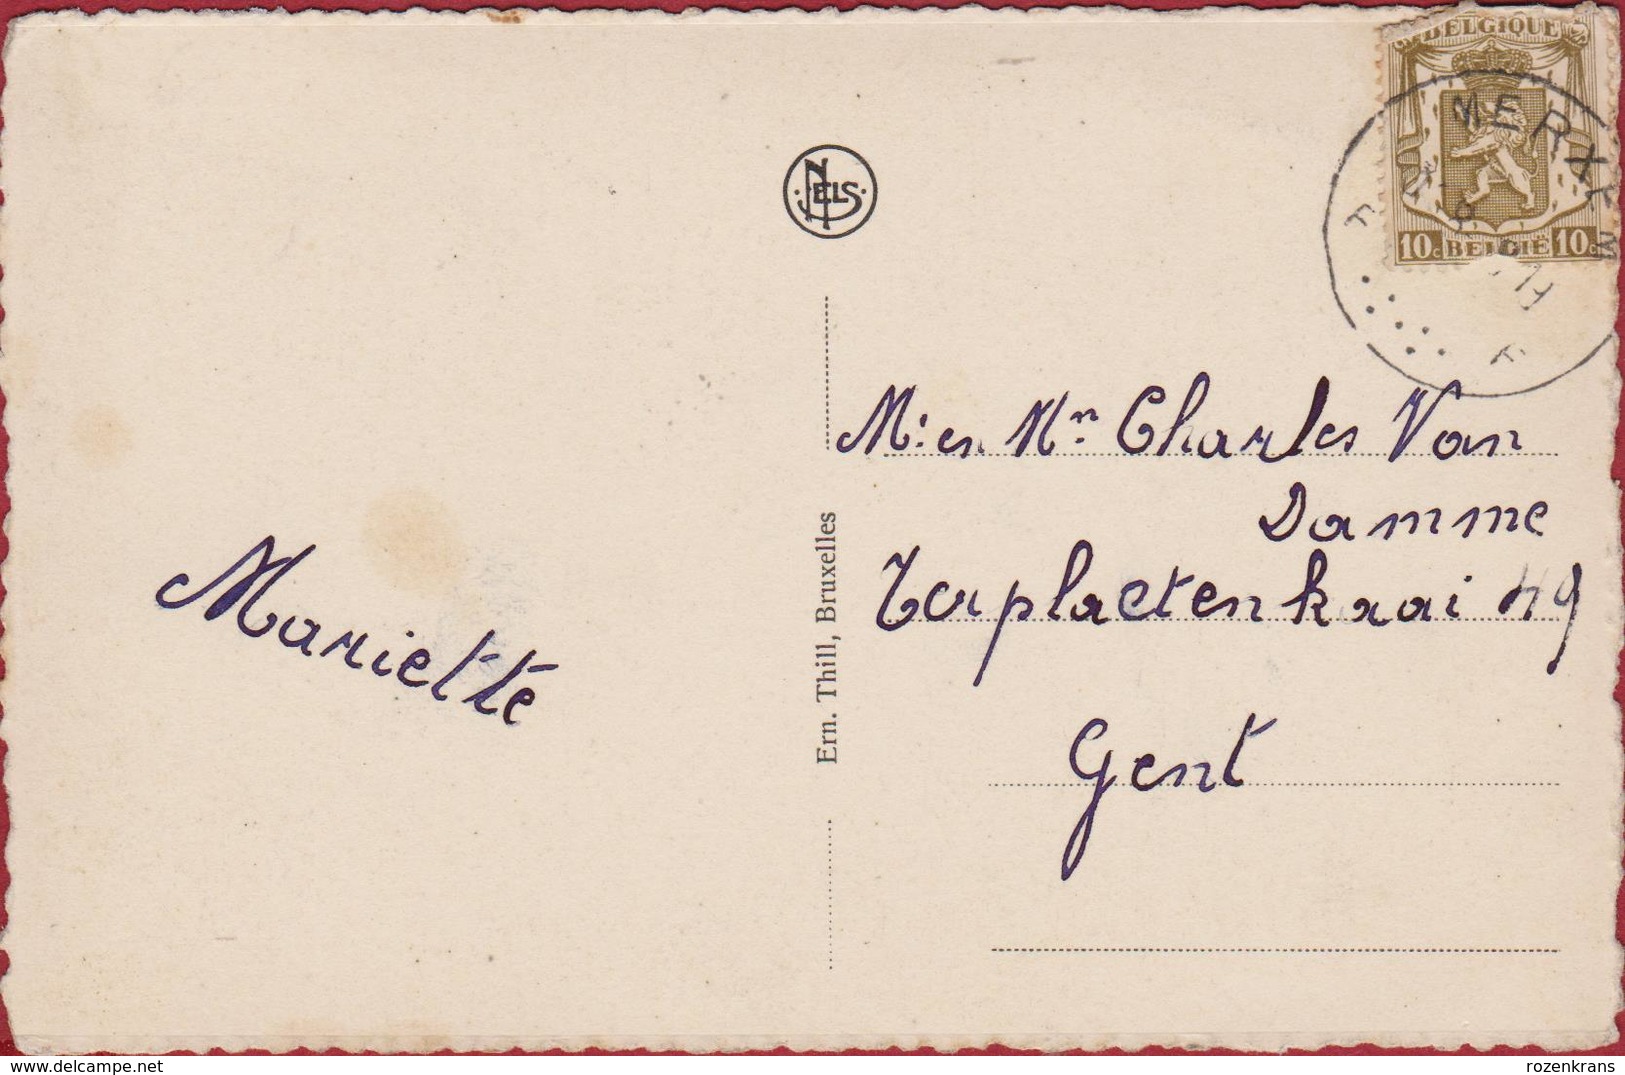 BELGIQUE
10c BELGIË 10c
MERXEM
F F
NELS
Mr. en Mr. Charles Van
Damme
Terplaetenkaai 49
Gent
Mariette
Ern. Thill, Bruxelles
https://www.delcampe.net
rozenkrans